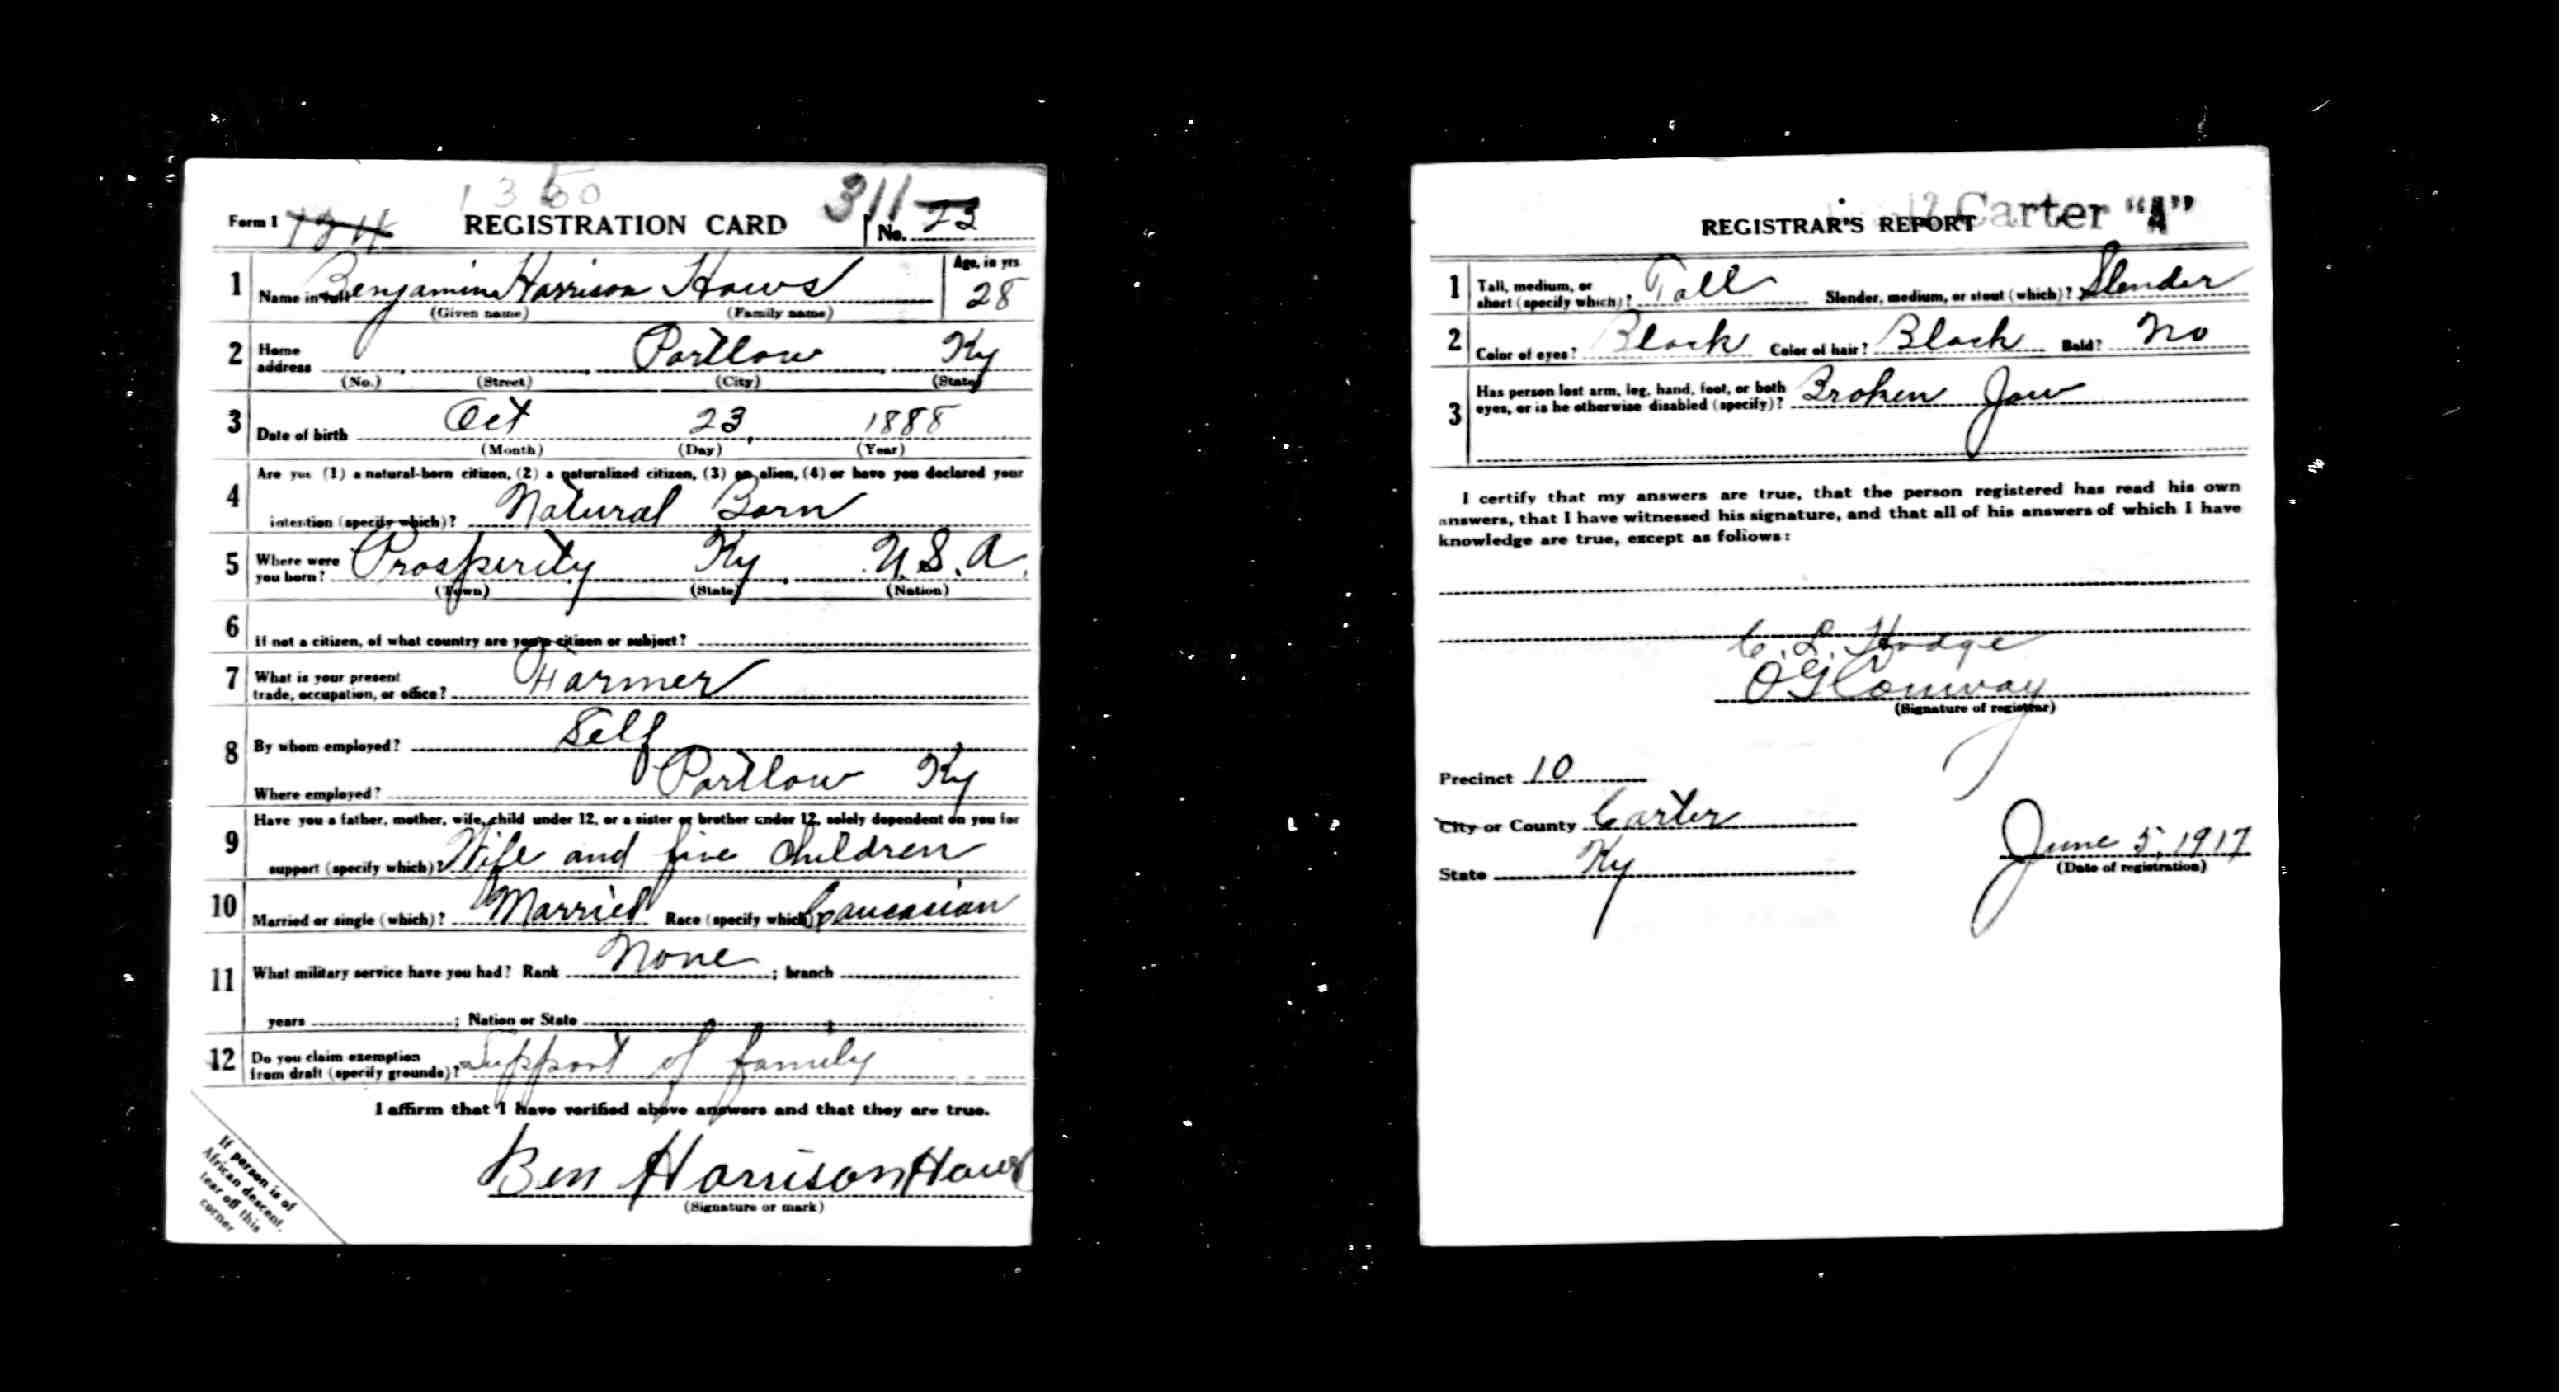 1350
311
Form 1 REGISTRATION CARD No. 23
1 Name in full Benjamin Harrison Haws Age, in yrs 28
(Given name) (Family name)
2 Home address Partlow Ky
(No.) (Street) (City) (State)
3 Date of birth Oct 23 1888
(Month) (Day) (Year)
4 Are you (1) a natural-born citizen, (2) a naturalized citizen, (3) an alien, (4) or have you declared your
intention (specify which)? Natural Born
5 Where were you born? Prosperity Ky U.S.A.
(Town) (State) (Nation)
6 If not a citizen, of what country are you a citizen or subject?
7 What is your present
trade, occupation, or office? Farmer
8 By whom employed? Self
Where employed? Partlow Ky
9 Have you a father, mother, wife, child under 12, or a sister or brother under 12, solely dependent on you for
support (specify which)? Wife and five children
10 Married or single (which)? Married Race (specify which) Caucasian
11 What military service have you had? Rank None ; branch
years ; Nation or State
12 Do you claim exemption
from draft (specify grounds)? Support of family
I affirm that I have verified above answers and that they are true.
Ben Harrison Haws
(Signature or mark)
If person is of
African descent,
tear off this
corner
Carter "A"
REGISTRAR'S REPORT
1 Tall, medium, or
short (specify which)? Tall Slender, medium, or stout (which)? Slender
2 Color of eyes? Black Color of hair? Black Bald? No
3 Has person lost arm, leg, hand, foot, or both
eyes, or is he otherwise disabled (specify)? Broken Jaw
I certify that my answers are true, that the person registered has read his own
answers, that I have witnessed his signature, and that all of his answers of which I have
knowledge are true, except as follows:
C. L. Hodge
O G Conway
(Signature of registrar)
Precinct 10
City or County Carter
State Ky
June 5, 1917
(Date of registration)